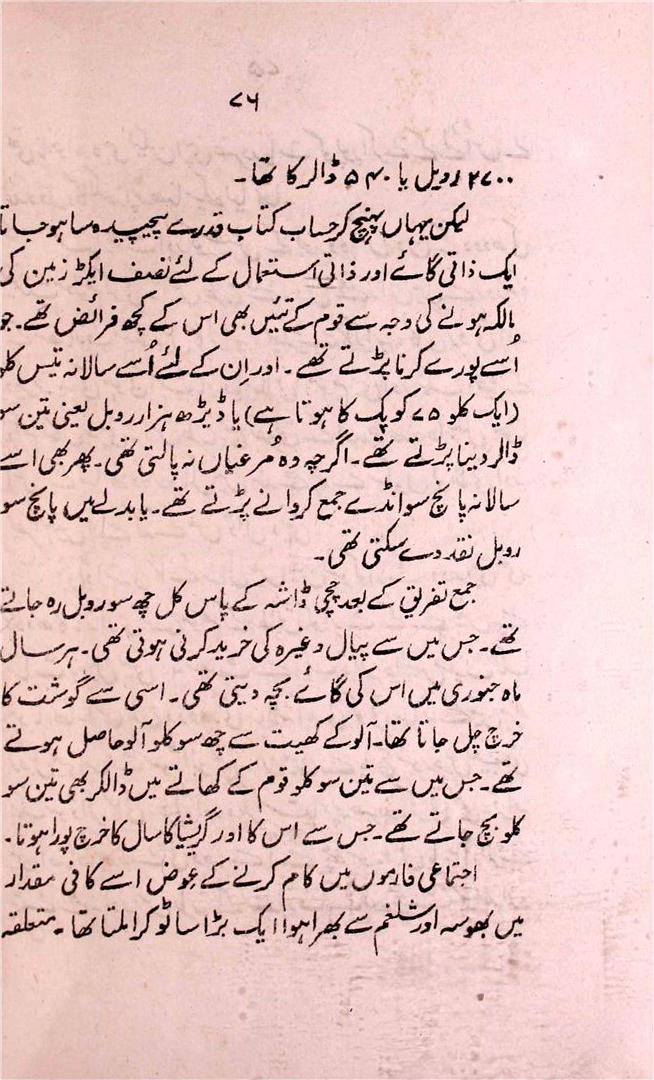 ۷۶
۲۷۰۰ روبل یا ۵۴۰ ڈالر کا تھا۔
لیکن یہاں پہنچ کر حساب کتاب قدرے پیچیدہ سا ہو جاتا
ایک ذاتی گائے اور ذاتی استعمال کے لئے نصف ایکڑ زمین کی
مالکہ ہونے کی وجہ سے قوم کے تئیں بھی اس کے کچھ فرائض تھے۔ جو
اُسے پورے کرنا پڑتے تھے۔ اور اِن کے لئے اُسے سالانہ تیس کلو
(ایک کلو ۷۵ کوپک کا ہوتا ہے) یا ڈیڑھ ہزار روبل یعنی تین سو
ڈالر دینا پڑتے تھے۔ اگرچہ وہ مُرغیاں نہ پالتی تھی۔ پھر بھی اسے
سالانہ پانچ سو انڈے جمع کروانے پڑتے تھے۔ یا بدلے میں پانچ سو
روبل نقد دے سکتی تھی۔
جمع تفریق کے بعد چچی ڈاشہ کے پاس کل چھ سو روبل رہ جاتے
تھے۔ جس میں سے پیال وغیرہ کی خرید کرنی ہوتی تھی۔ ہر سال
ماہ جنوری میں اس کی گائے بچہ دیتی تھی۔ اسی سے گوشت کا
خرچ چل جاتا تھا۔ آلو کے کھیت سے چھ سو کلو آلو حاصل ہوتے
تھے۔ جس میں سے تین سو کلو قوم کے کھاتے میں ڈالکر بھی تین سو
کلو بچ جاتے تھے۔ جس سے اس کا اور گریشا کا سال کا خرچ پورا ہوتا۔
اجتماعی فارموں میں کام کرنے کے عوض اسے کافی مقدار
میں بھوسہ اور شلغم سے بھرا ہوا ایک بڑا سا ٹوکرا ملتا تھا۔ متعلقہ